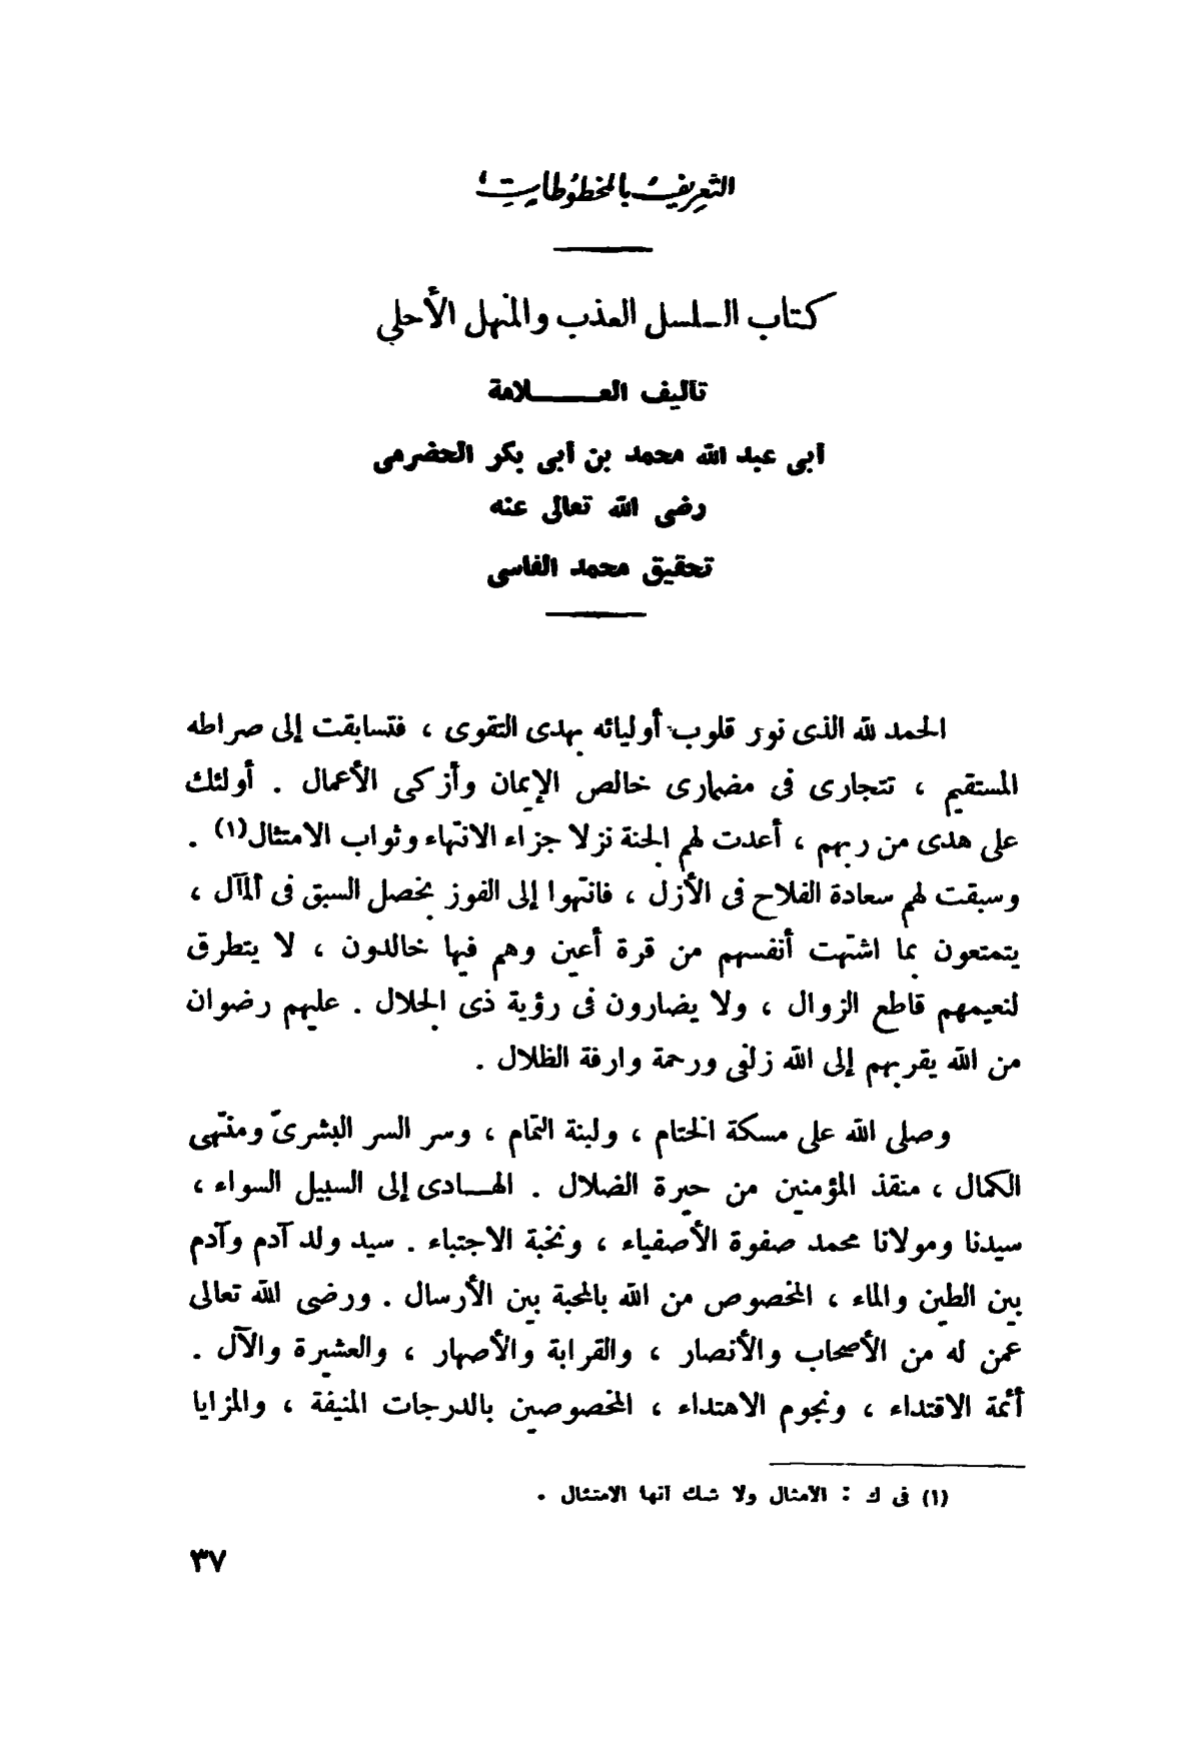 التعريف بالمخطوطات
كتاب السلسل العذب والمنهل الأحلى
تأليف العـــــلامة
أبى عبد الله محمد بن أبى بكر الحضرمى
رضى الله تعالى عنه
تحقيق محمد الفاسى
الحمد لله الذى نور قلوب أوليائه بهدى التقوى ، فتسابقت إلى صراطه
المستقيم ، تتجارى فى مضمارى خالص الإيمان وأزكى الأعمال . أولئك
على هدى من ربهم ، أعدت لهم الجنة نزلا جزاء الانتهاء وثواب الامتثال(١) .
وسبقت لهم سعادة الفلاح فى الأزل ، فانتهوا إلى الفوز بخصل السبق فى المآل ،
يتمتعون بما اشتهت أنفسهم من قرة أعين وهم فيها خالدون ، لا يتطرق
لنعيمهم قاطع الزوال ، ولا يضارون فى رؤية ذى الجلال . عليهم رضوان
من الله يقربهم إلى الله زلفى ورحمة وارفة الظلال .
وصلى الله على مسكة الختام ، ولبنة التمام ، وسر السر البشرىّ ومنتهى
الكمال ، منقذ المؤمنين من حيرة الضلال . الهـادى إلى السبيل السواء ،
سيدنا ومولانا محمد صفوة الأصفياء ، ونخبة الاجتباء . سيد ولد آدم وآدم
بين الطين والماء ، المخصوص من الله بالمحبة بين الأرسال . ورضى الله تعالى
عمن له من الأصحاب والأنصار ، والقرابة والأصهار ، والعشيرة والآل .
أئمة الاقتداء ، ونجوم الاهتداء ، المخصوصين بالدرجات المنيفة ، والمزايا
(١) فى ك : الأمثال ولا شك أنها الامتثال .
٣٧